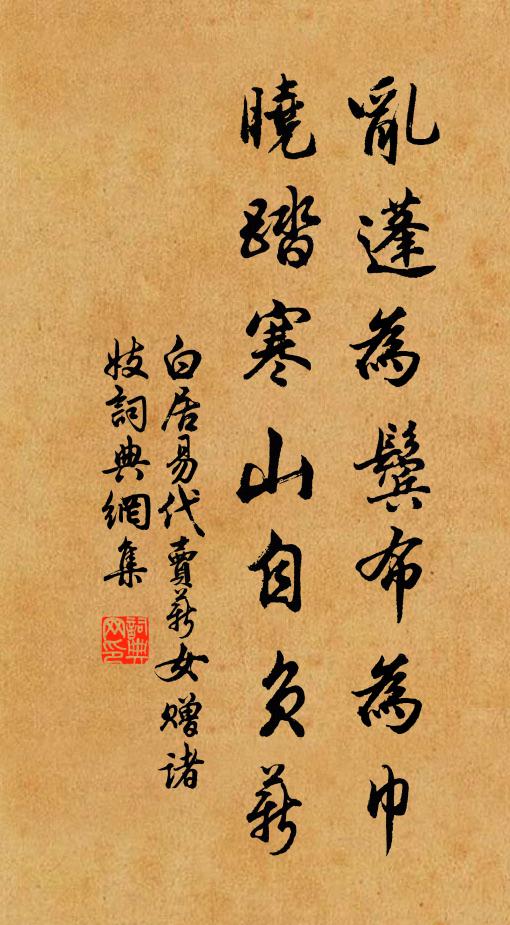 亂蓬為鬢布為巾
曉踏寒山自負薪
白居易代賣薪女贈諸
妓詞典網集
詞典
网印